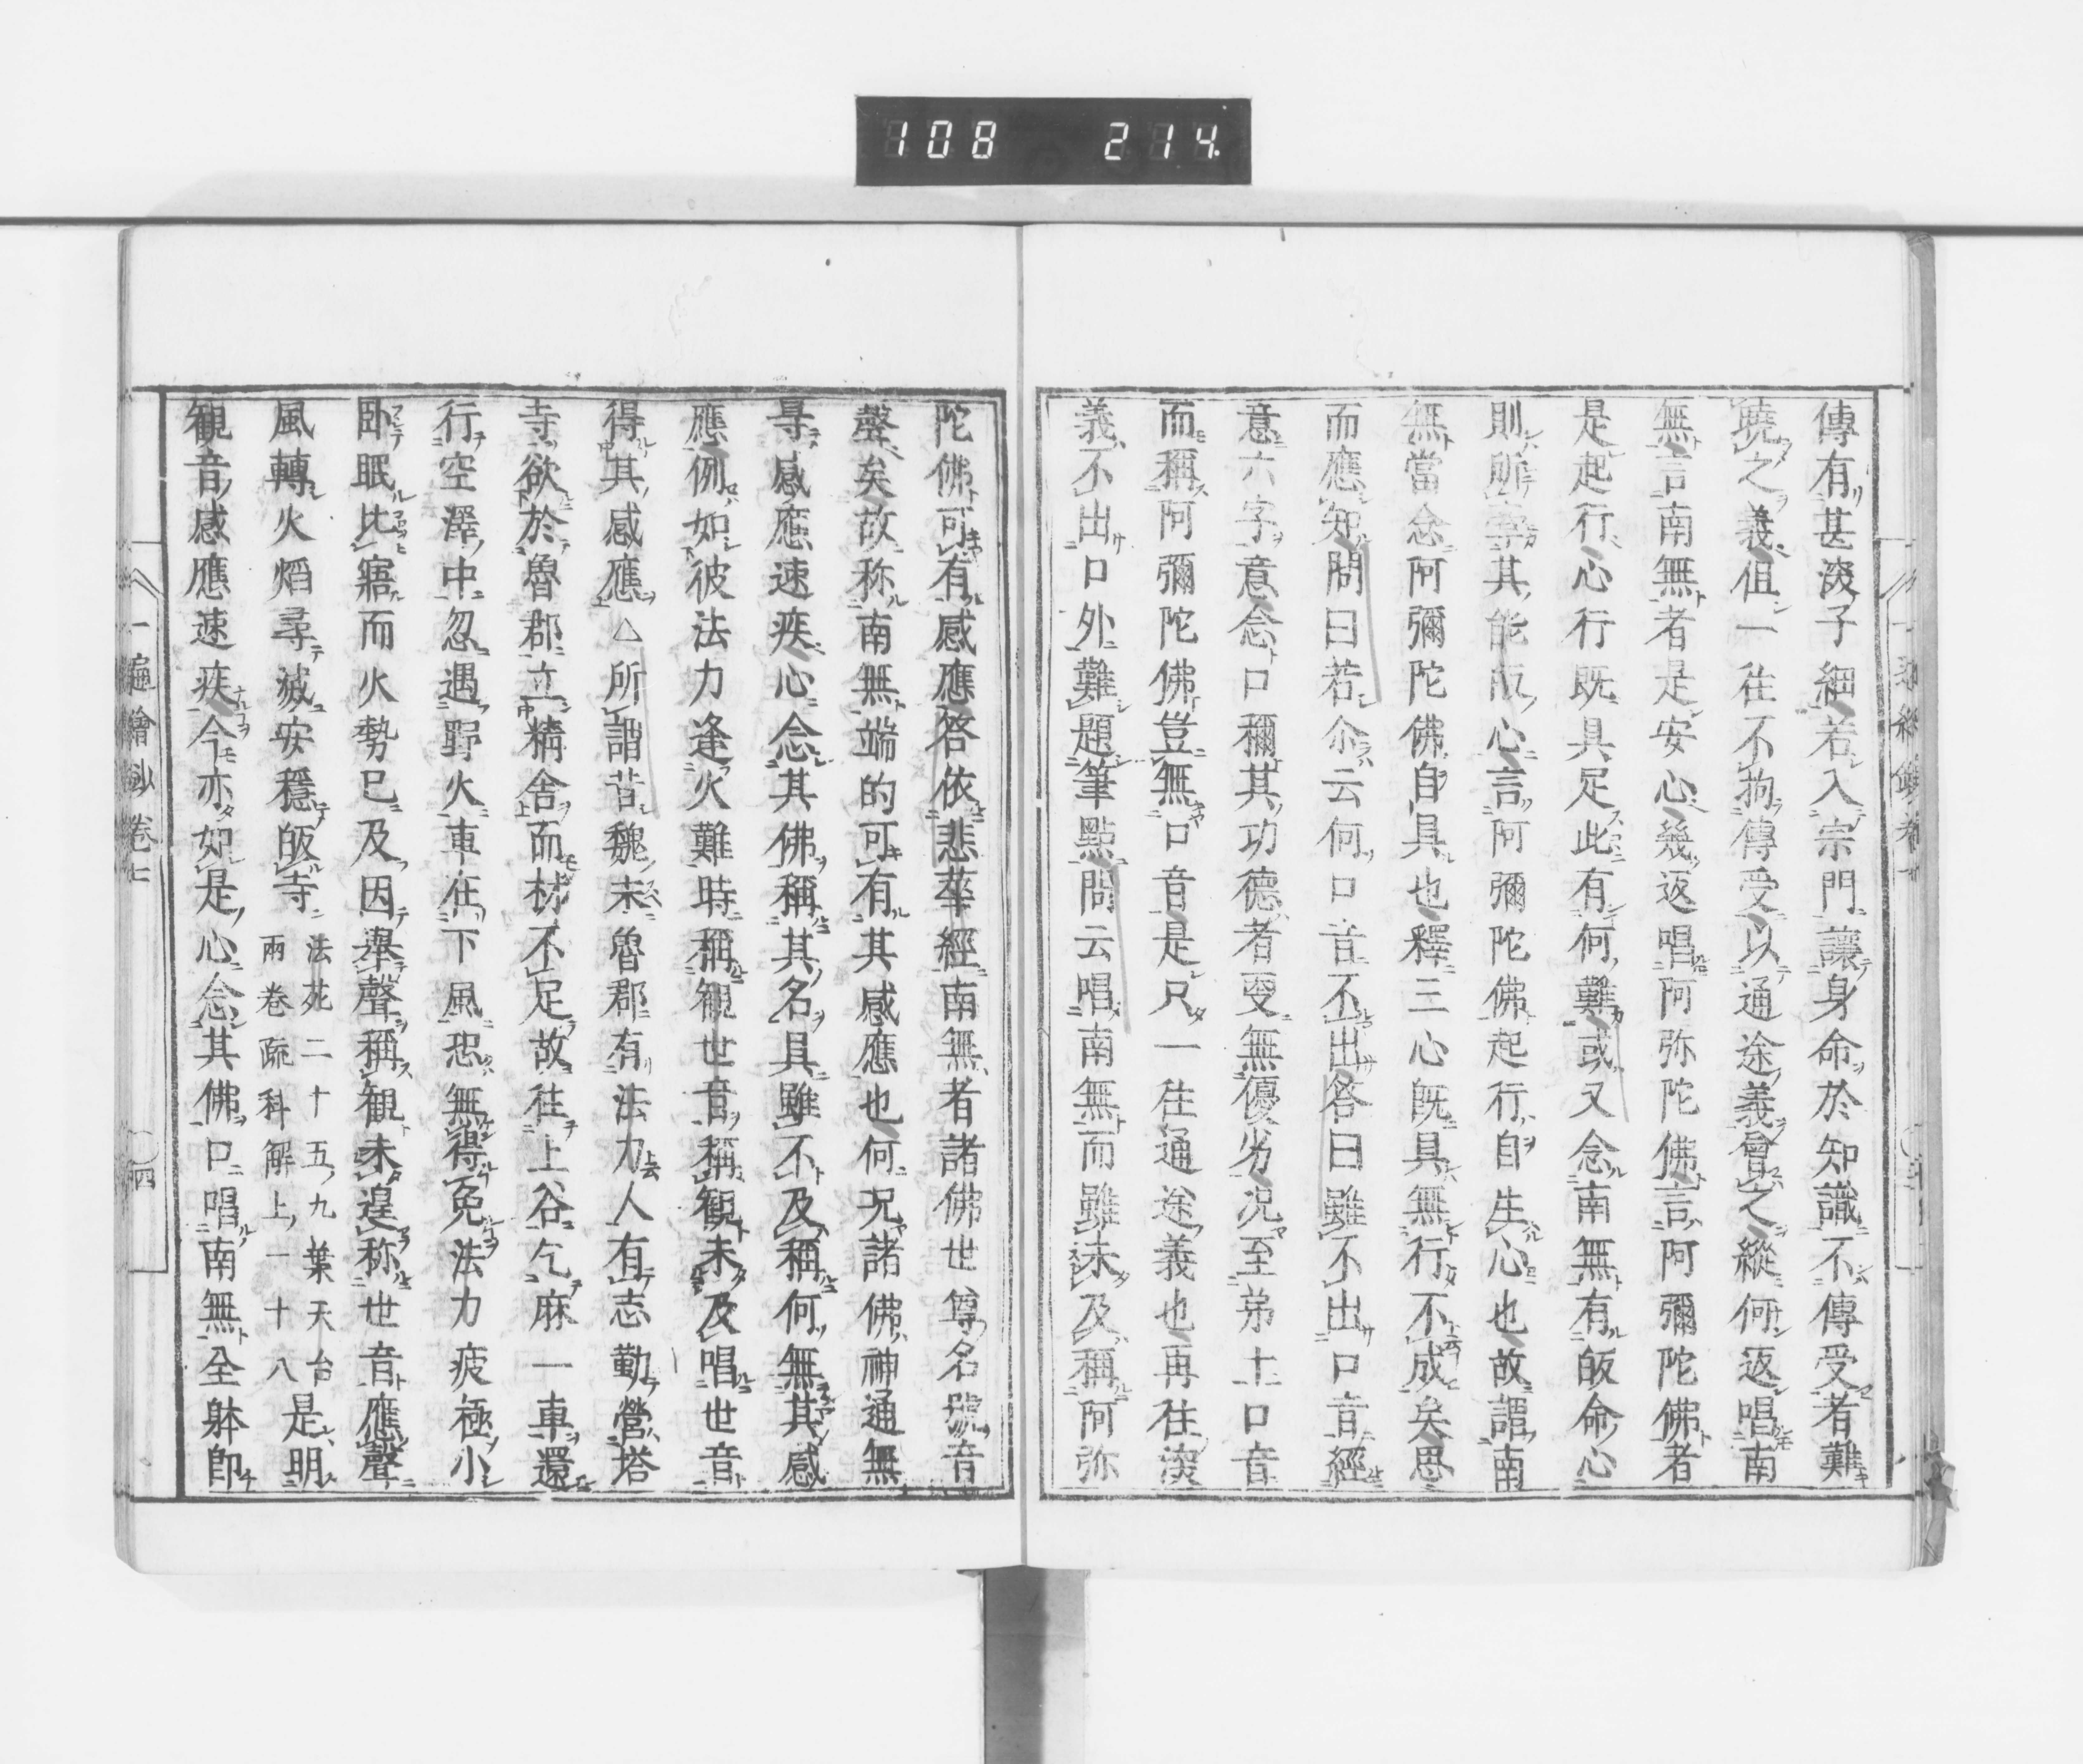 108 214
傳有甚深子細若入宗門讓身命於知識不傳受者難
曉之義但一往不拘傳受以通途義會之縱何返唱南
無言南無者是安心幾返唱阿弥陀佛言阿彌陀佛者
是起行心行既具足此有何難或又念南無有皈命心
則所其能皈心言阿彌陀佛起行自生心也故謂南
無當念阿彌陀佛自具也釋三心既具無行不成矣思
而應知問曰若尒云何口音不出答曰雖不出口音經
意六字意念口稱其功德者更無優劣况至弟十口音
而稱阿彌陀佛豈無口音是尺一往通途義也再往深
義不出口外難題筆點問云唱南無而雖未及稱阿弥
陀佛可有感應答依悲華經南無者諸佛世尊名號音
聲矣故称南無端的可有其感應也何况諸佛神通無
㝵感應速疾心念其佛稱其名具雖不及稱何無其感
應例如彼法力逢火難時稱観世音稱観未及唱世音
得其感應△所謂昔魏末魯郡有法力人有志勤營塔
寺欲於魯郡立精舍而材不足故往上谷乞麻一車還
行空澤中忽遇野火車在下風恐無得免法力疲極小
臥眠比寤而火勢已及因舉聲稱観未遑称世音應聲
風轉火焰尋滅安穩皈寺 法苑二十五九葉天台 兩卷疏科解上一十八 是明
観音感應速疾今亦如是心念其佛口唱南無全躰即
一遍繪抄卷七
四